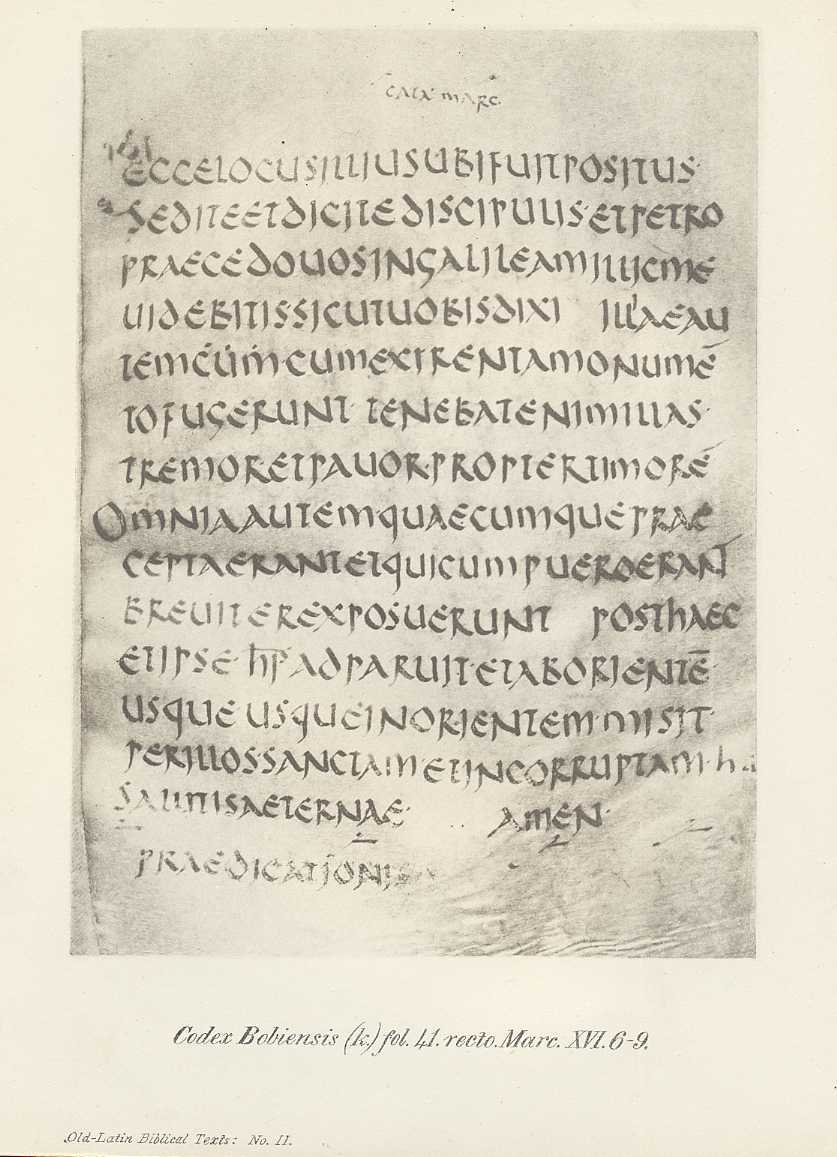 CATA MARC.
ECCE LOCUS ILLIUS UBI FUIT POSITUS·
SED ITE ET DICITE DISCIPULIS· ET PETRO
PRAECEDO UOS IN GALILEAM ILLIC ME
UIDEBITIS SICUT UOBIS DIXI ILLAE AU
TEM CUM· CUM EXIRENT A MONUMĒ
TO FUGERUNT· TENEBAT ENIM ILLAS·
TREMOR ET PAUOR· PROPTER TIMORĒ
OMNIA AUTEM QUAECUMQUE PRAE
CEPTA ERANT ET QUI CUM PUERO ERANT
BREUITER EXPOSUERUNT POST HAEC
ET IPSE· HIS̄ ADPARUIT· ET AB ORIENTĒ
USQUE USQUE IN ORIENTEM· MISIT·
PER ILLOS SANCTAM· ET INCORRUPTAM·
SALUTIS AETERNAE· AMEN·
PRAEDICATIONIS
Codex Bobiensis (k.) fol. 41. recto. Marc. XVI. 6-9.
Old-Latin Biblical Texts: No. II.